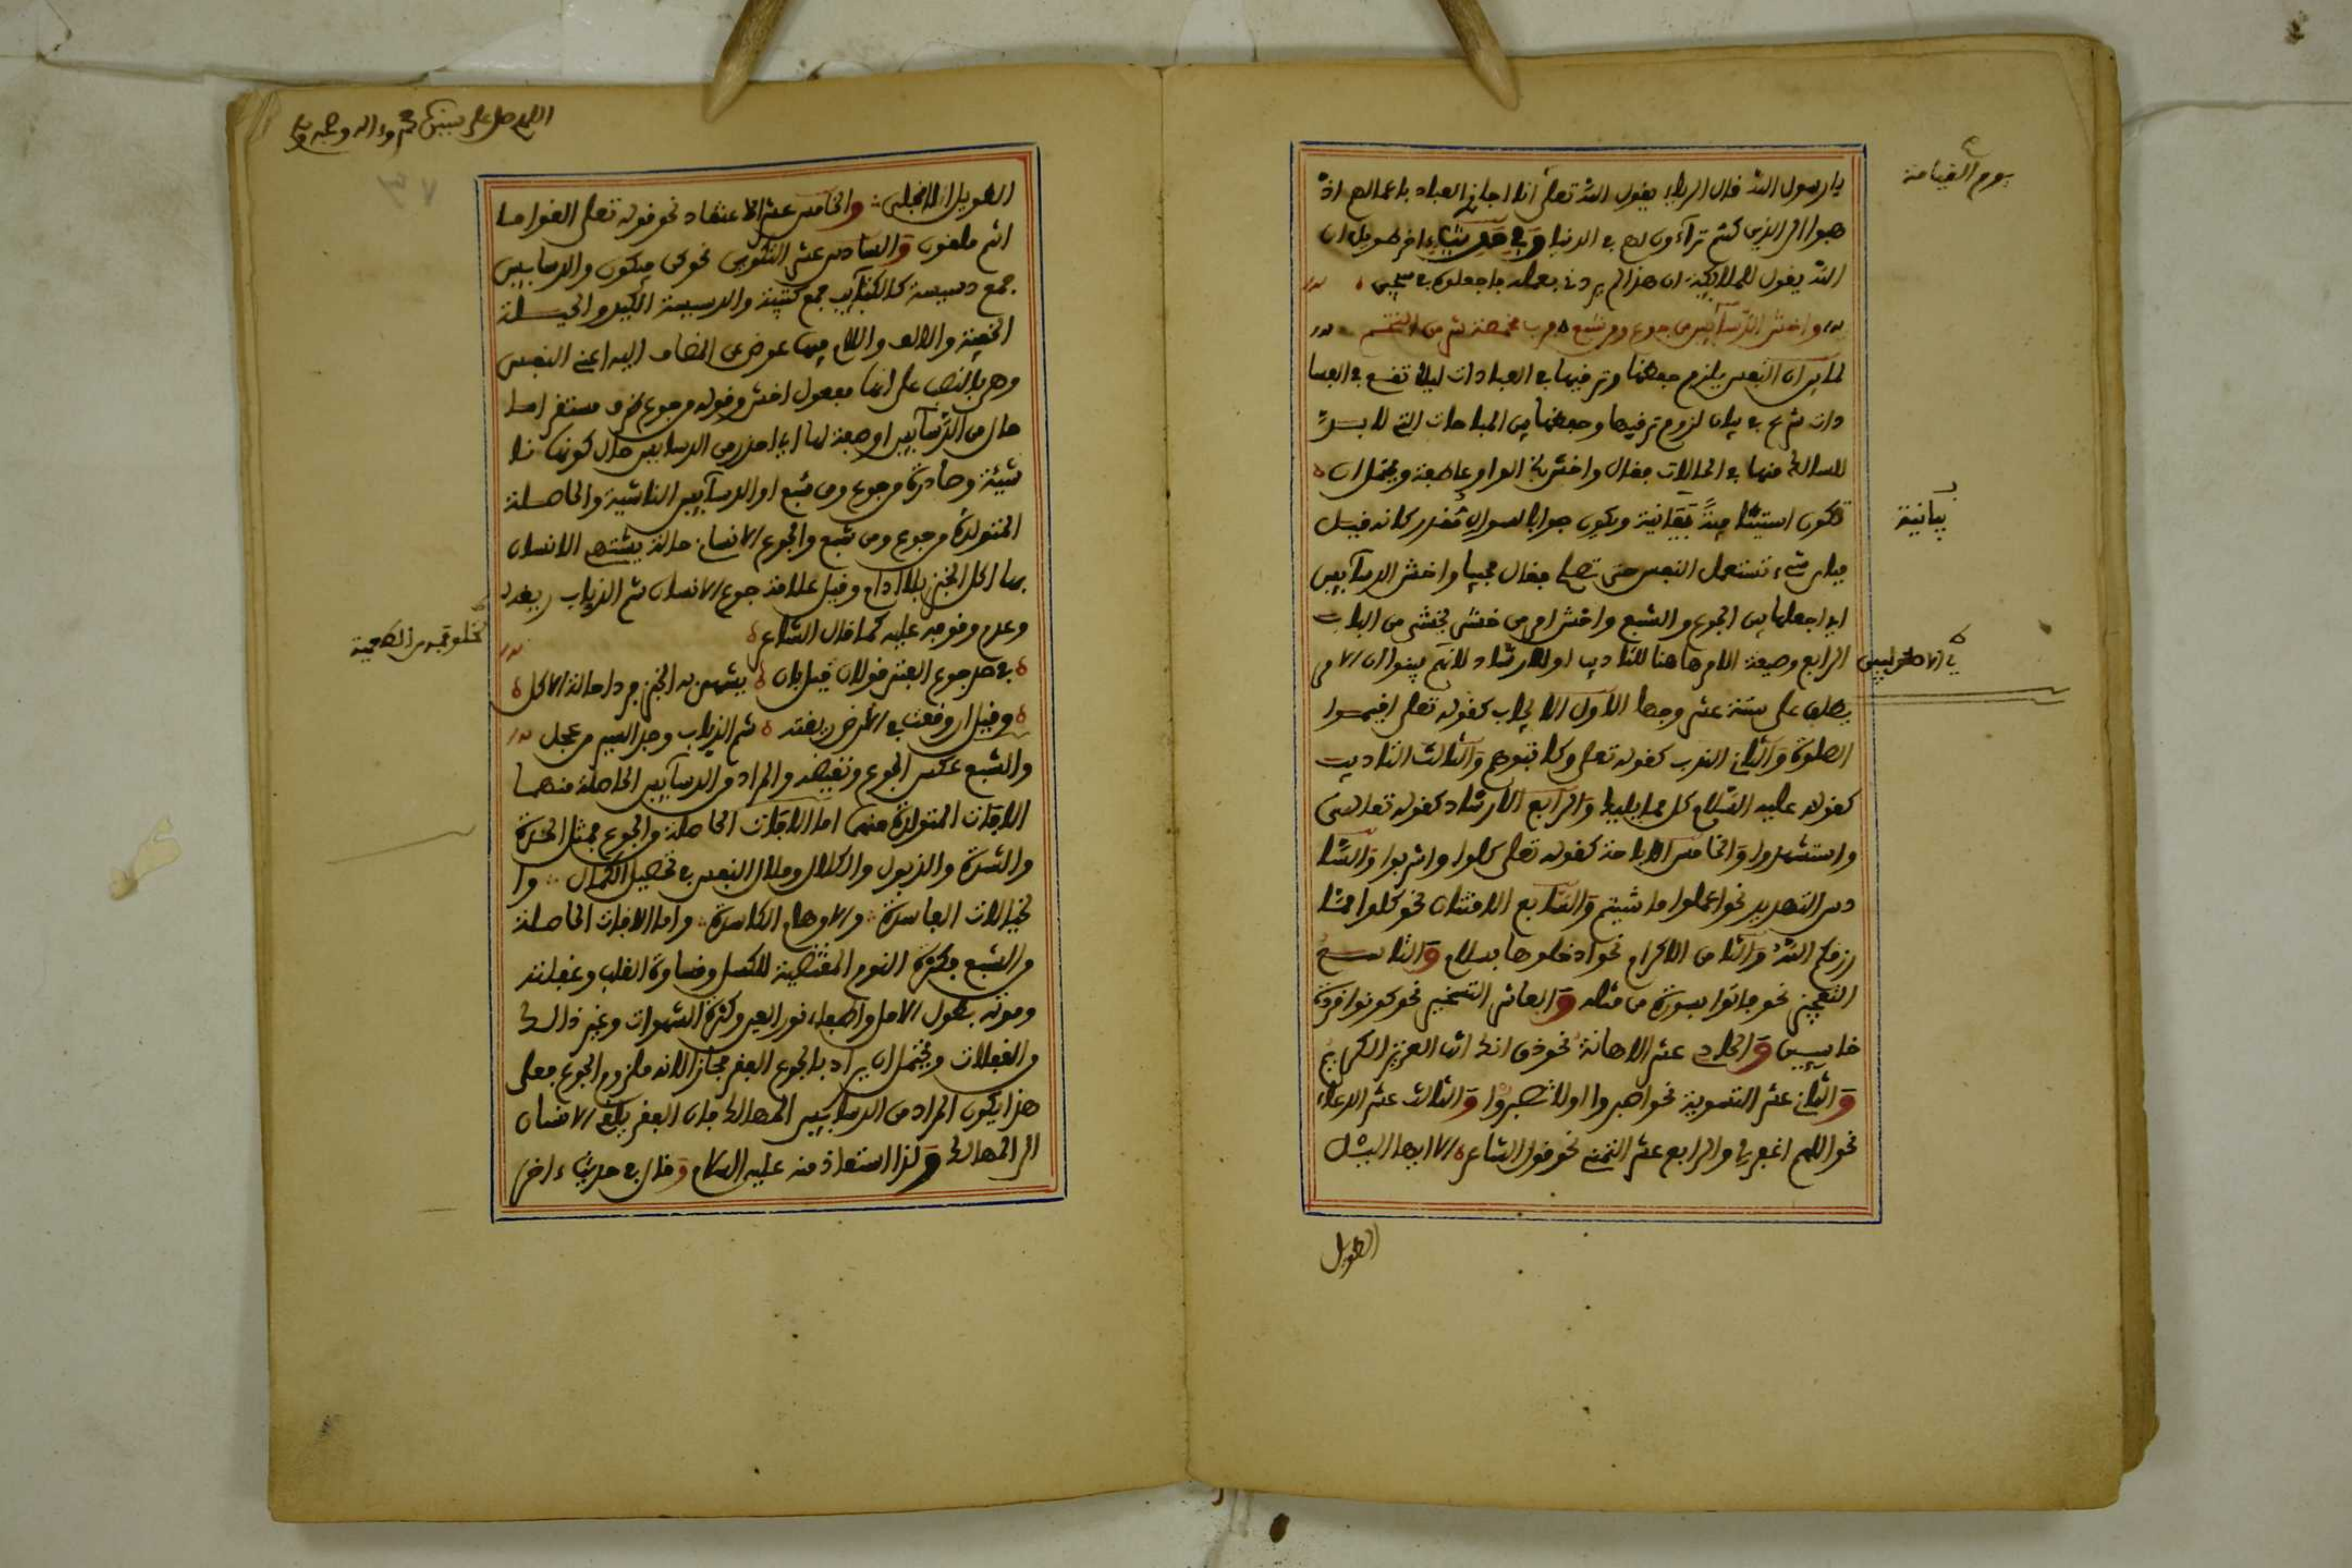 يوم القيامة
يا رسول الله قال الرياء يقول الله تعلى انا اجازي العباد باعمالهم اذ
هبوا الى الذين كنتم تراءون لهم في الدنيا وفي حديث ءاخر طويل ان
الله يقول للملائكة ان هذا لم يردني بعمله فاجعلوه في سجين
واخش الدسآئس من جوع ومن شبع فرب مخمصة شر من التخم
لما بين ان النفس يلزم حفظها وترفيها في العبادات ليلا تقع في الفسا
دات شرع في بيان لزوم ترفيها وحفظها من المباحات التي لا بد
للسالك منها في الحالات فقال واخش الخ الواو عاطفة ويحتمل ان
تكون استينافية بيانية ويكون جوابا لسوال مقدر كانه قيل
بيانية
فباي شيء تستعمل النفس حتى تصلح فقال مجيبا واخش الدسآيس
اي اجعلها بين الجوع والشبع واخش امر من خشي يخشى من الباب
الرابع وصيغة الامر هاهنا للتاديب او للارشاد لانهم بينوا ان الامر
يطلق على ستة عشر وجها الاول الايجاب كقوله تعلى اقيموا
الصلوة والثاني الندب كقوله تعلى وكاتبوهم والثالث التاديب
كقوله عليه السلام كل مما يليك والرابع الارشاد كقوله تعالى
واستشهدوا والخامس الاباحة كقوله تعلى كلوا واشربوا والسا
دس التهديد نحو اعملوا ما شيتم والسابع الامتنان نحو كلوا مما
رزقكم الله والثامن الاكرام نحو ادخلوها بسلام والتاسع
التعجيز نحو فاتوا بسورة من مثله والعاشر التسخير نحو كونوا قردة
خاسيين والحادي عشر الاهانة نحو ذق انك انت العزيز الكريم
والثاني عشر التسوية نحو اصبروا اولا تصبروا والثالث عشر الدعاء
نحو اللهم اغفر لي والرابع عشر التمني نحو قول الشاعر الا ايها الليل
الطويل
اللهم صل على نبينا محمد وءاله وصحبه
الطويل الا انجلي والخامس عشر الاعتقاد نحو قوله تعلى القوا ما
انتم ملقون والسادس عشر التكوين نحو كن فيكون والدسايس
جمع دسيسة كالكتآيب جمع كتيبة والدسيسة الكيد والحيلة
الخفية والالف واللام فيها عوض عن المضاف اليه اعني النفس
وهي بالنصب على انها مفعول اخش وقوله من جوع ظرف مستقر اما
حال من الدسآيس او صفة لها اي احذر من الدسايس حال كونها نا
شيئة وصادرة من جوع ومن شبع او الدسآيس الناشية والحاصلة
المتولدة من جوع ومن شبع والجوع الانسان حالة يشتهي الانسان
بها اكل الخبز بلا ادام وقيل علامة جوع الانسان شم الذباب ريقه
وعدم وقوعه عليه كما قال الشاعر
في حد جوع الفتى قولان قيل بان يشهى به الخبز فردا حالة الاكل
وقيل ان وقعت في الارض ريقته شم الذباب وجد السير من عجل
والشبع عكس الجوع ونقيضه والمراد من الدسآيس الحاصلة منهما
الافات المتولدة منهما اما الافات الحاصلة من الجوع فمثل الحدة
والشدة والذبول والكلال وملال النفس في تحصيل الكمال وا
لخيالات الفاسدة والاوهام الكاسدة واما الافات الحاصلة
من الشبع فكثرة النوم المقتضية للكسل وقساوة القلب وغفلته
وموته بطول الامل واطفاء نور العين وكثرة الشهوات وغير ذالك
من الغفلات ويحتمل ان يراد بالجوع الفقر مجازا لانه ملزوم الجوع فعلى
هذا يكون المراد من الدسآئس المهالك فان الفقر يلقي الانسان
الى المهالك ولذا استعاذ منه عليه السلام وقال في حديث ءاخر